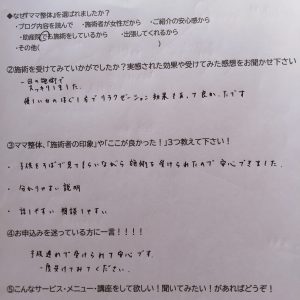 ◆なぜ『ママ整体』を選ばれましたか?
・ブログ内容を読んで ・施術者が女性だから ・ご紹介の安心感から
・助産院でも施術をしているから ・出張してくれるから
・その他(
②施術を受けてみていかがでしたか?実感された効果や受けてみた感想をお聞かせ下さい
一回の施術で
スッキリしました。
優しいもみほぐし方でリラクゼーション効果もあって良かったです
③ママ整体、「施術者の印象」や「ここが良かった!」3つ教えて下さい!
・子供をそばで見てもらいながら施術を受けられたので安心できました。
・分かりやすい説明
・話しやすい 相談しやすい
④お申込みを迷っている方に一言!!!!
子供連れで受けられて安心です。
一度受けてみてください。
⑤こんなサービス・メニュー・講座をして欲しい!聞いてみたい!があればどうぞ!